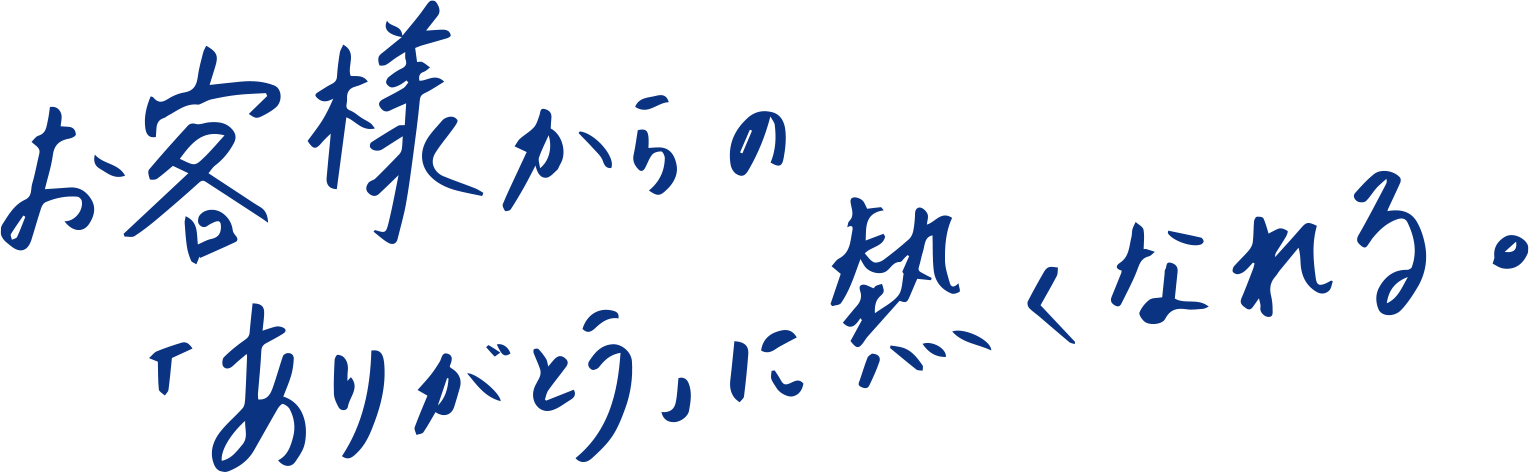 お客様からの
「ありがとう」に熱くなれる。